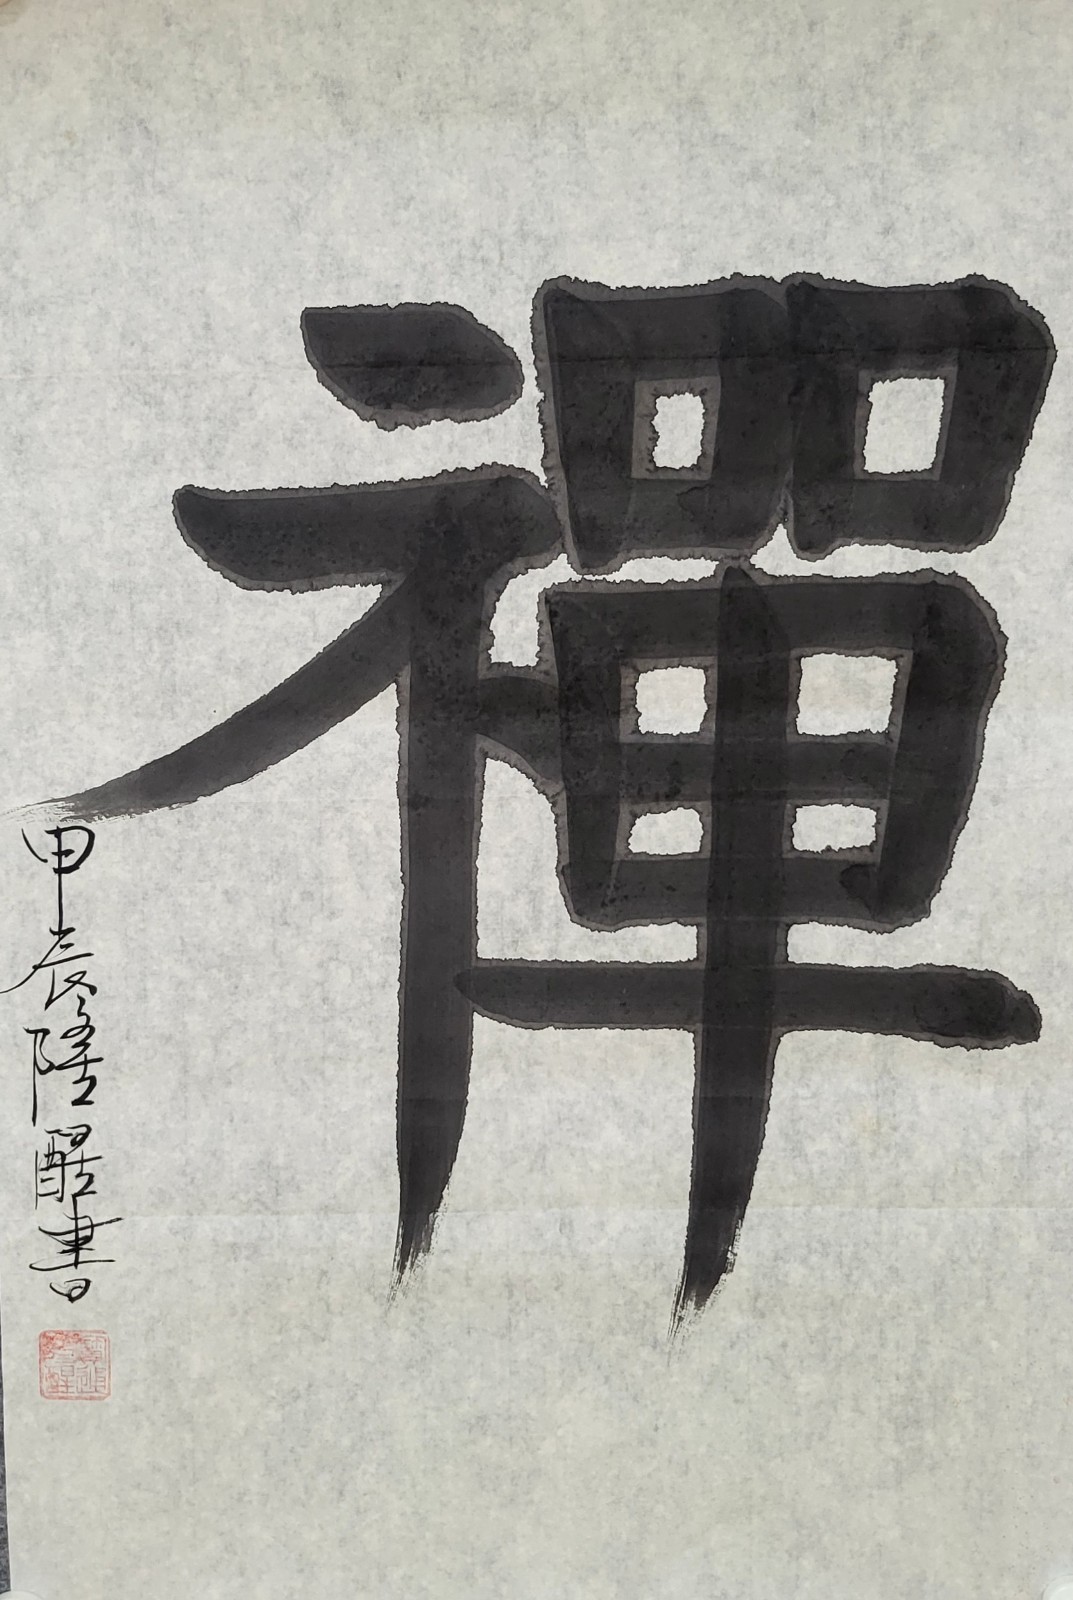 禪
甲辰陸醒書